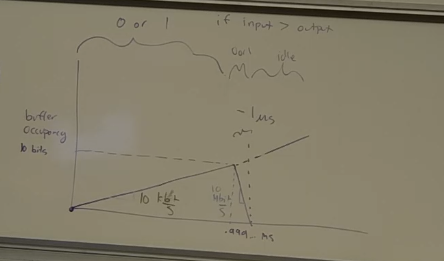 0 or 1 if input > output
0 or 1 idle
~1 µs
buffer
occupancy
10 bits
10
10 kbit
s
.999 ms